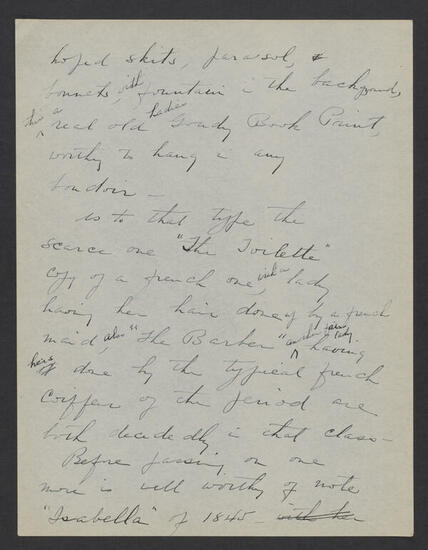 hoped skits, parasol, &
bonnets, with fountain in the background,
this a real old Godey Ladies Book Print,
worthy to hang in any
boudoir —
As to that type the
scarce one "The Toilette"
copy of a french one, with a lady
having her hair done up by a french
maid, also "The Barber" another fair lady having
hers done by the typical french
Coiffeur of the period are
both decidedly in that class —
Before passing on one
more is well worthy of note
"Isabella" of 1845 — with her